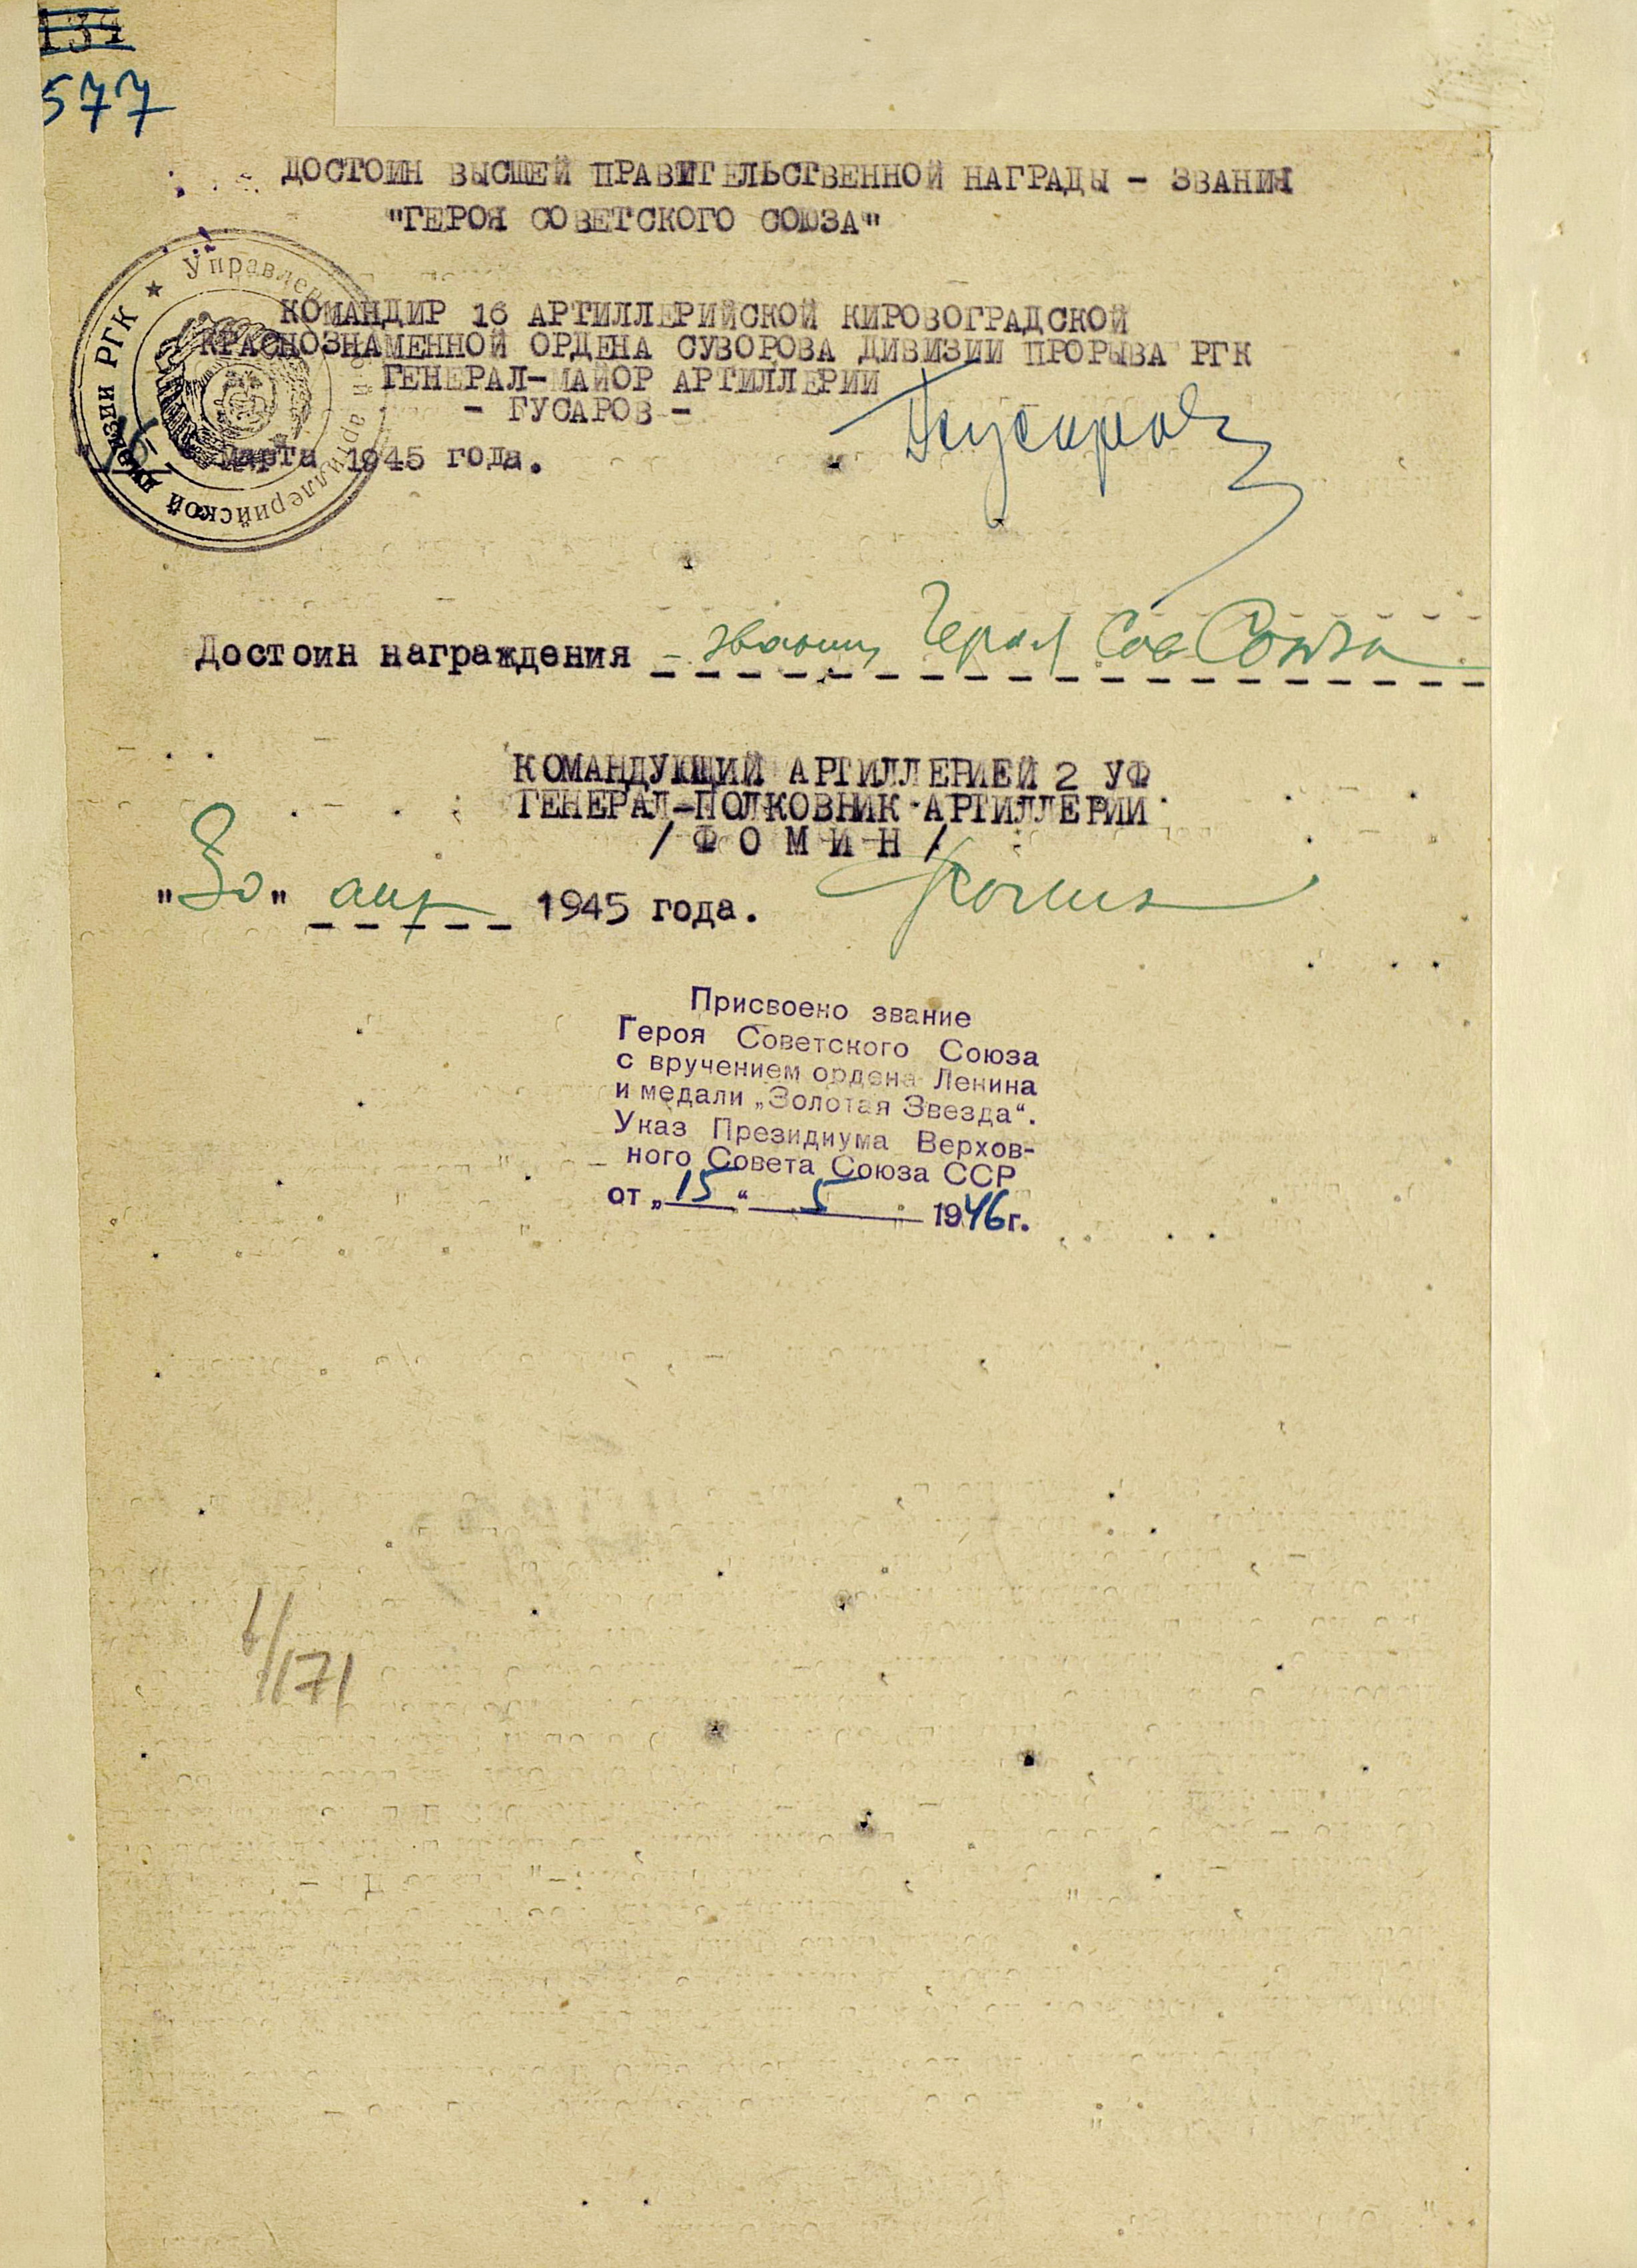 134
577
ДОСТОИН ВЫСШЕЙ ПРАВИТЕЛЬСТВЕННОЙ НАГРАДЫ - ЗВАНИЯ
"ГЕРОЯ СОВЕТСКОГО СОЮЗА"
Управлен ой артиллерийской дивизии РГК ★
КОМАНДИР 16 АРТИЛЛЕРИЙСКОЙ КИРОВОГРАДСКОЙ
КРАСНОЗНАМЕННОЙ ОРДЕНА СУВОРОВА ДИВИЗИИ ПРОРЫВА РГК
ГЕНЕРАЛ-МАЙОР АРТИЛЛЕРИИ
- ГУСАРОВ -
Гусаров
марта 1945 года.
Достоин награждения - звания Героя Сов Союза
КОМАНДУЮЩИЙ АРТИЛЛЕРИЕЙ 2 УФ
ГЕНЕРАЛ-ПОЛКОВНИК АРТИЛЛЕРИИ
/ Ф О М И Н /
"30" апр 1945 года. Фомин
Присвоено звание
Героя Советского Союза
с вручением ордена Ленина
и медали „Золотая Звезда“.
Указ Президиума Верхов-
ного Совета Союза ССР
от „15“ 5 1946г.
/171